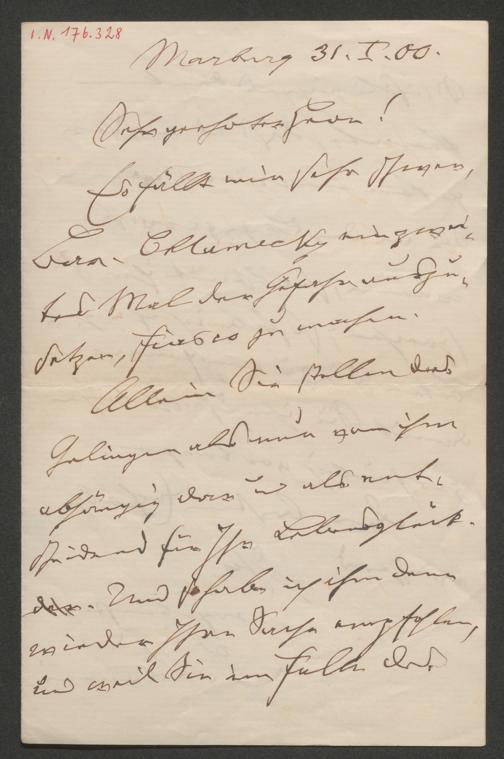 I.N. 176.328
Marburg 31. I. 00.
Sehr geehrter Herr!
Es fällt mir sehr schwer,
Baron Chlumecky ein zwei-
tes Mal der Gefahr auszu-
setzen, Fiasco zu machen.
Allein Sie stellen das
Gelingen als nur von ihm
abhängig dar u als ent-
scheidend für Ihr Lebensglück.
Und so habe ich ihm denn
wieder Ihre Sache empfohlen,
und weil Sie im Falle des